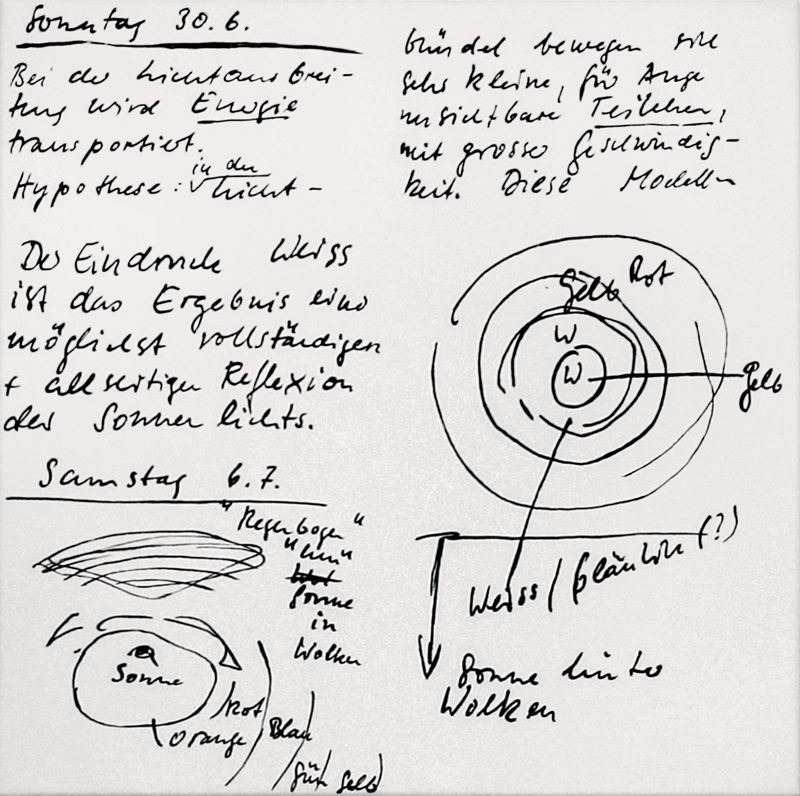 Sonntag 30.6.
Bei der Lichtausbrei-
tung wird Energie
transportiert.
in der
Hypothese: Licht-
Der Eindruck Weiss
ist das Ergebnis einer
möglichst vollständigen
+ allseitigen Reflexion
des Sonnenlichts.
Samstag 6.7.
"Regenbogen"
"um"
Sonne
in
Wolken
Sonne
Rot
Orange
Blau
Grün
Gelb
bündel bewegen sich
sehr kleine, für Auge
unsichtbare Teilchen,
mit grosser Geschwindig-
keit. Diese Modell-
Gelb Rot
W
W
Gelb
Weiss / bläulich (?)
Sonne hinter
Wolken